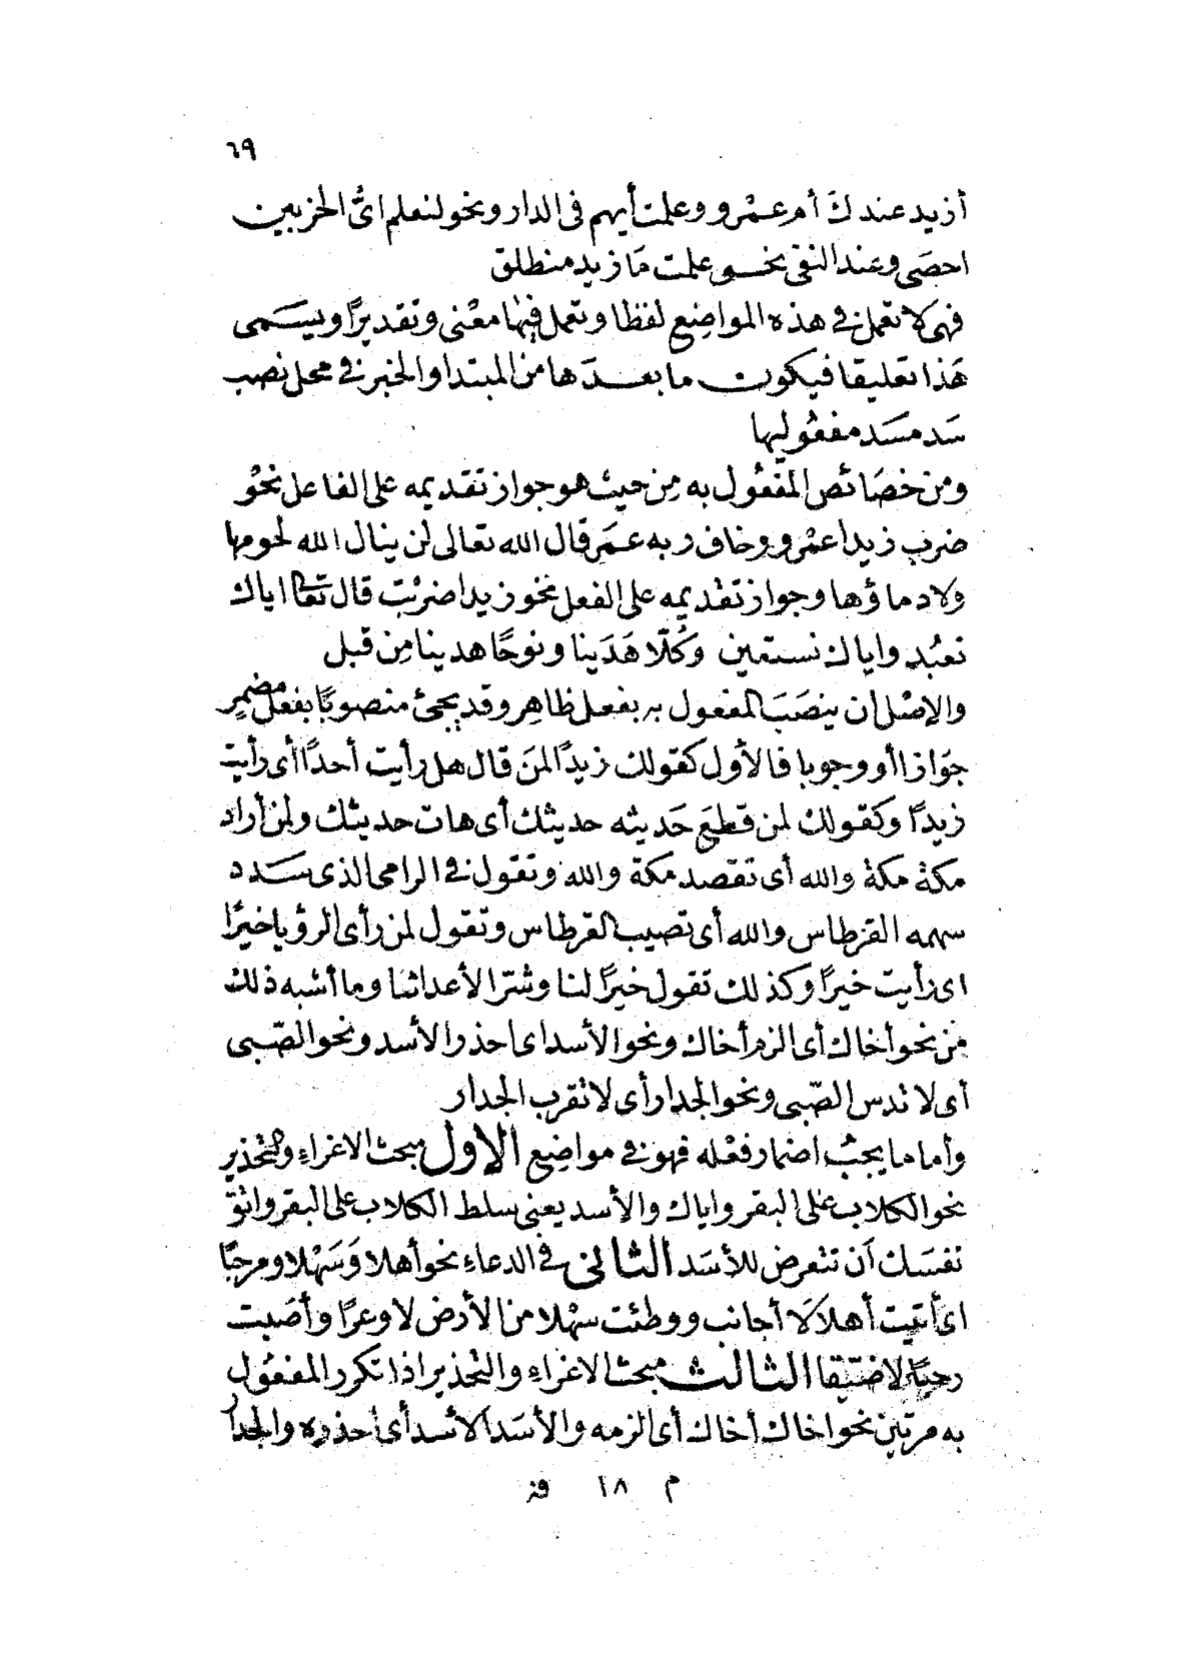 ٦٩
أزيد عندك أم عمْرو وعلمت أيهم فى الدار ونحو لنعلم اىُّ الحزبين
احصَى وعند النفى نحو علمت مَا زيد منطلق
فهى لا تعمل فى هذه المواضِع لفظا وتعمل فيهَا معْنى وتقديرًا ويسَمى
هَذا تعليقا فيكون ما بعدَها من المبتدا والخبر فى محل نصب
سَد مسَد مفعُوليها
ومن خصَائص المفعُول به مِن حيث هو جواز تقديمه على الفاعل نحْو
ضرب زيدا عمْرو وخاف ربه عمَر قال الله تعالى لن ينال الله لحومها
ولا دماؤها وجواز تقديمه على الفعل نحو زيدا ضربْت قال تعالى اياك
نعبُد واياك نستعين وكُلّا هَدَينا ونوحًا هدينا مِن قبل
والاصْل ان ينصَبَ المفعول به بفعل ظاهِر وقد يجئ منصوبًا بفعل مضمِر
جوَازا أو وجوبا فالأول كقولك زيدًا لمن قال هل رأيت أحدًا أى رأيت
زيدًا وكقولك لمن قطع حَديثه حديثك أى هات حديثك ولمن أراد
مكة مكة والله أى تقصد مكة والله وتقول فى الرامى الذى سَدد
سهمه القرطاس والله أى تصيب القرطاس وتقول لمن رأى الرؤيا خيرًا
اى رأيت خيرًا وكذلك تقول خيرًا لنا وشرّا لأعدائنا وما أشبه ذلك
من نحو أخاك أى الزم أخاك ونحو الأسد اى احذر الأسد ونحو الصّبى
أى لا تدس الصّبى ونحو الجدار أى لا تقرب الجدار
وأما ما يجبُ اضمار فعْله فهو فى مواضِع الاول مبحث الاغراء والتحذير
نحو الكلاب على البقر واياك والأسد يعنى سلط الكلاب على البقر واتق
نفسَك أن تتعرض للأسَد الثانى فى الدعاء نحو أهلا وَسَهْلا ومرحبًا
اى أتيت أهلا لَا أجانب ووطئت سهْلا من الأرض لا وعرًا وأصَبت
رحبًا لا ضيّقا الثالث مبحث الاغراء والتحذير اذا تكرر المفعُول
به مرتين نحو اخاك أخاك أى الزمه والأسَد الأسد أى احذره والجدار
م ١٨ فز